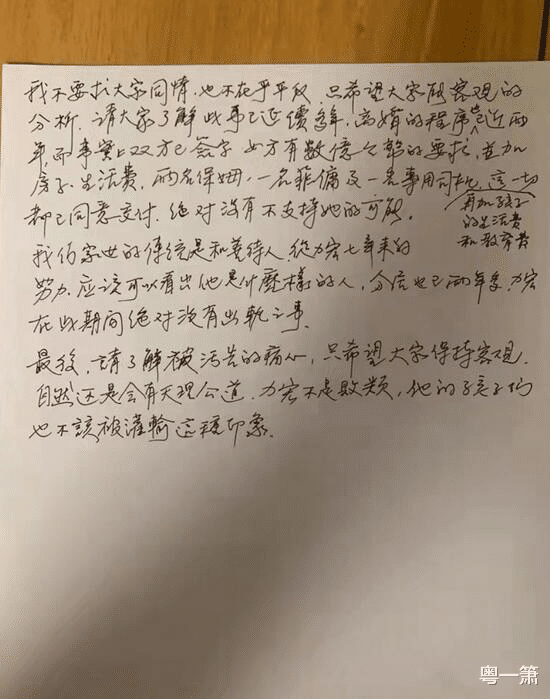 我不要求大家同情,也不在乎平反,只希望大家能客观的
分析.请大家了解此事已延续多年,离婚的程序已近两
年,而事实上双方已签字.女方有数億台幣的要求,並加
房子.生活費,兩名保姆,一名菲傭及一名專用司机,這一切
再加孩子
的生活費
和教育費
都已同意交付.绝对没有不支持她的可能.
我们家世的傳統是和善待人,從力宏七年来的
努力,应該可以看出他是什麼樣的人,分居也已兩年多,力宏
在此期间绝对没有出軌之事.
最後,請了解被污告的痛心,只希望大家保持客观.
自然还是会有天理公道.力宏不是败類,他的孩子们
也不該被灌輸這種印象.
粤一箫